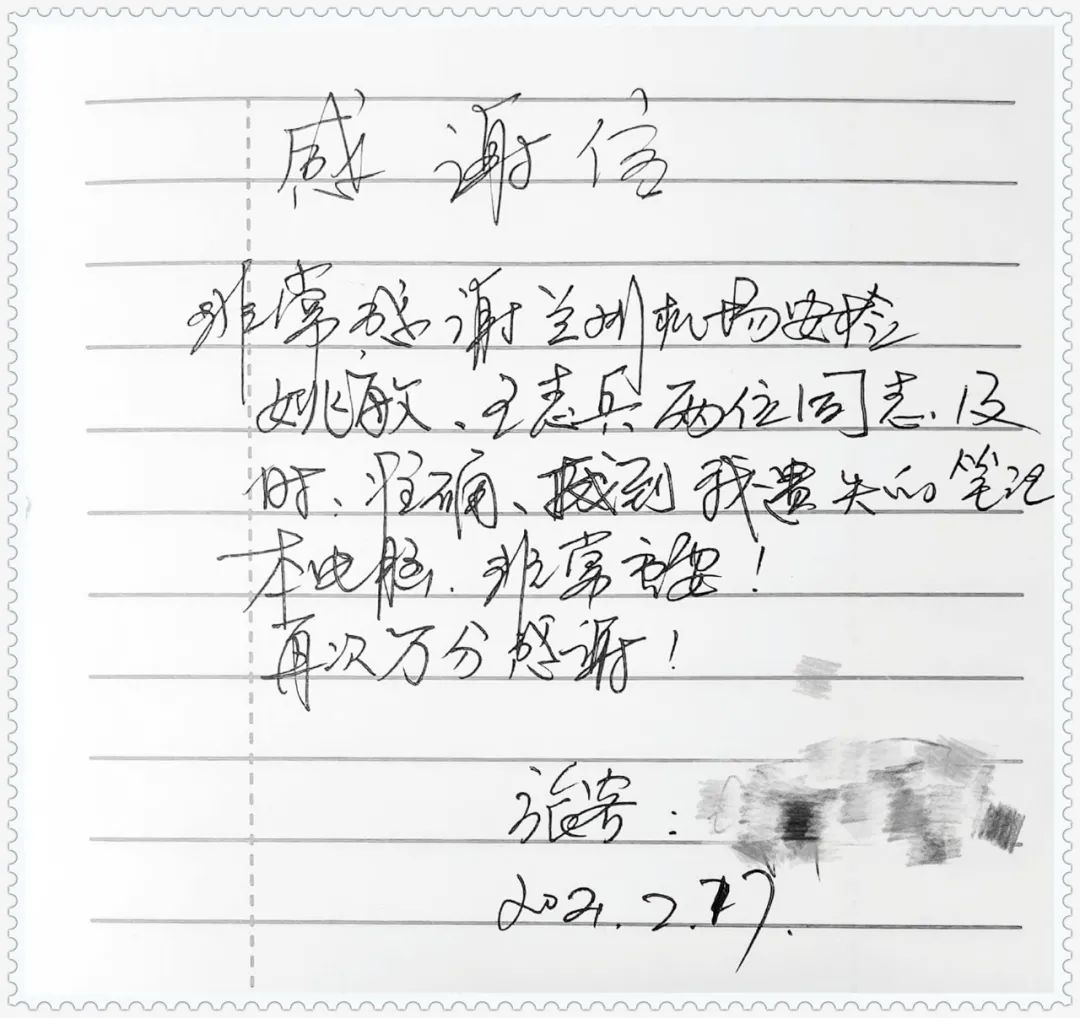 感谢信
非常感谢兰州机场安检
姚敏、王志兵两位同志.及
时、准确、找到我遗失的笔记
本电脑.非常重要!
再次万分感谢!
旅客:
2021.2.17.